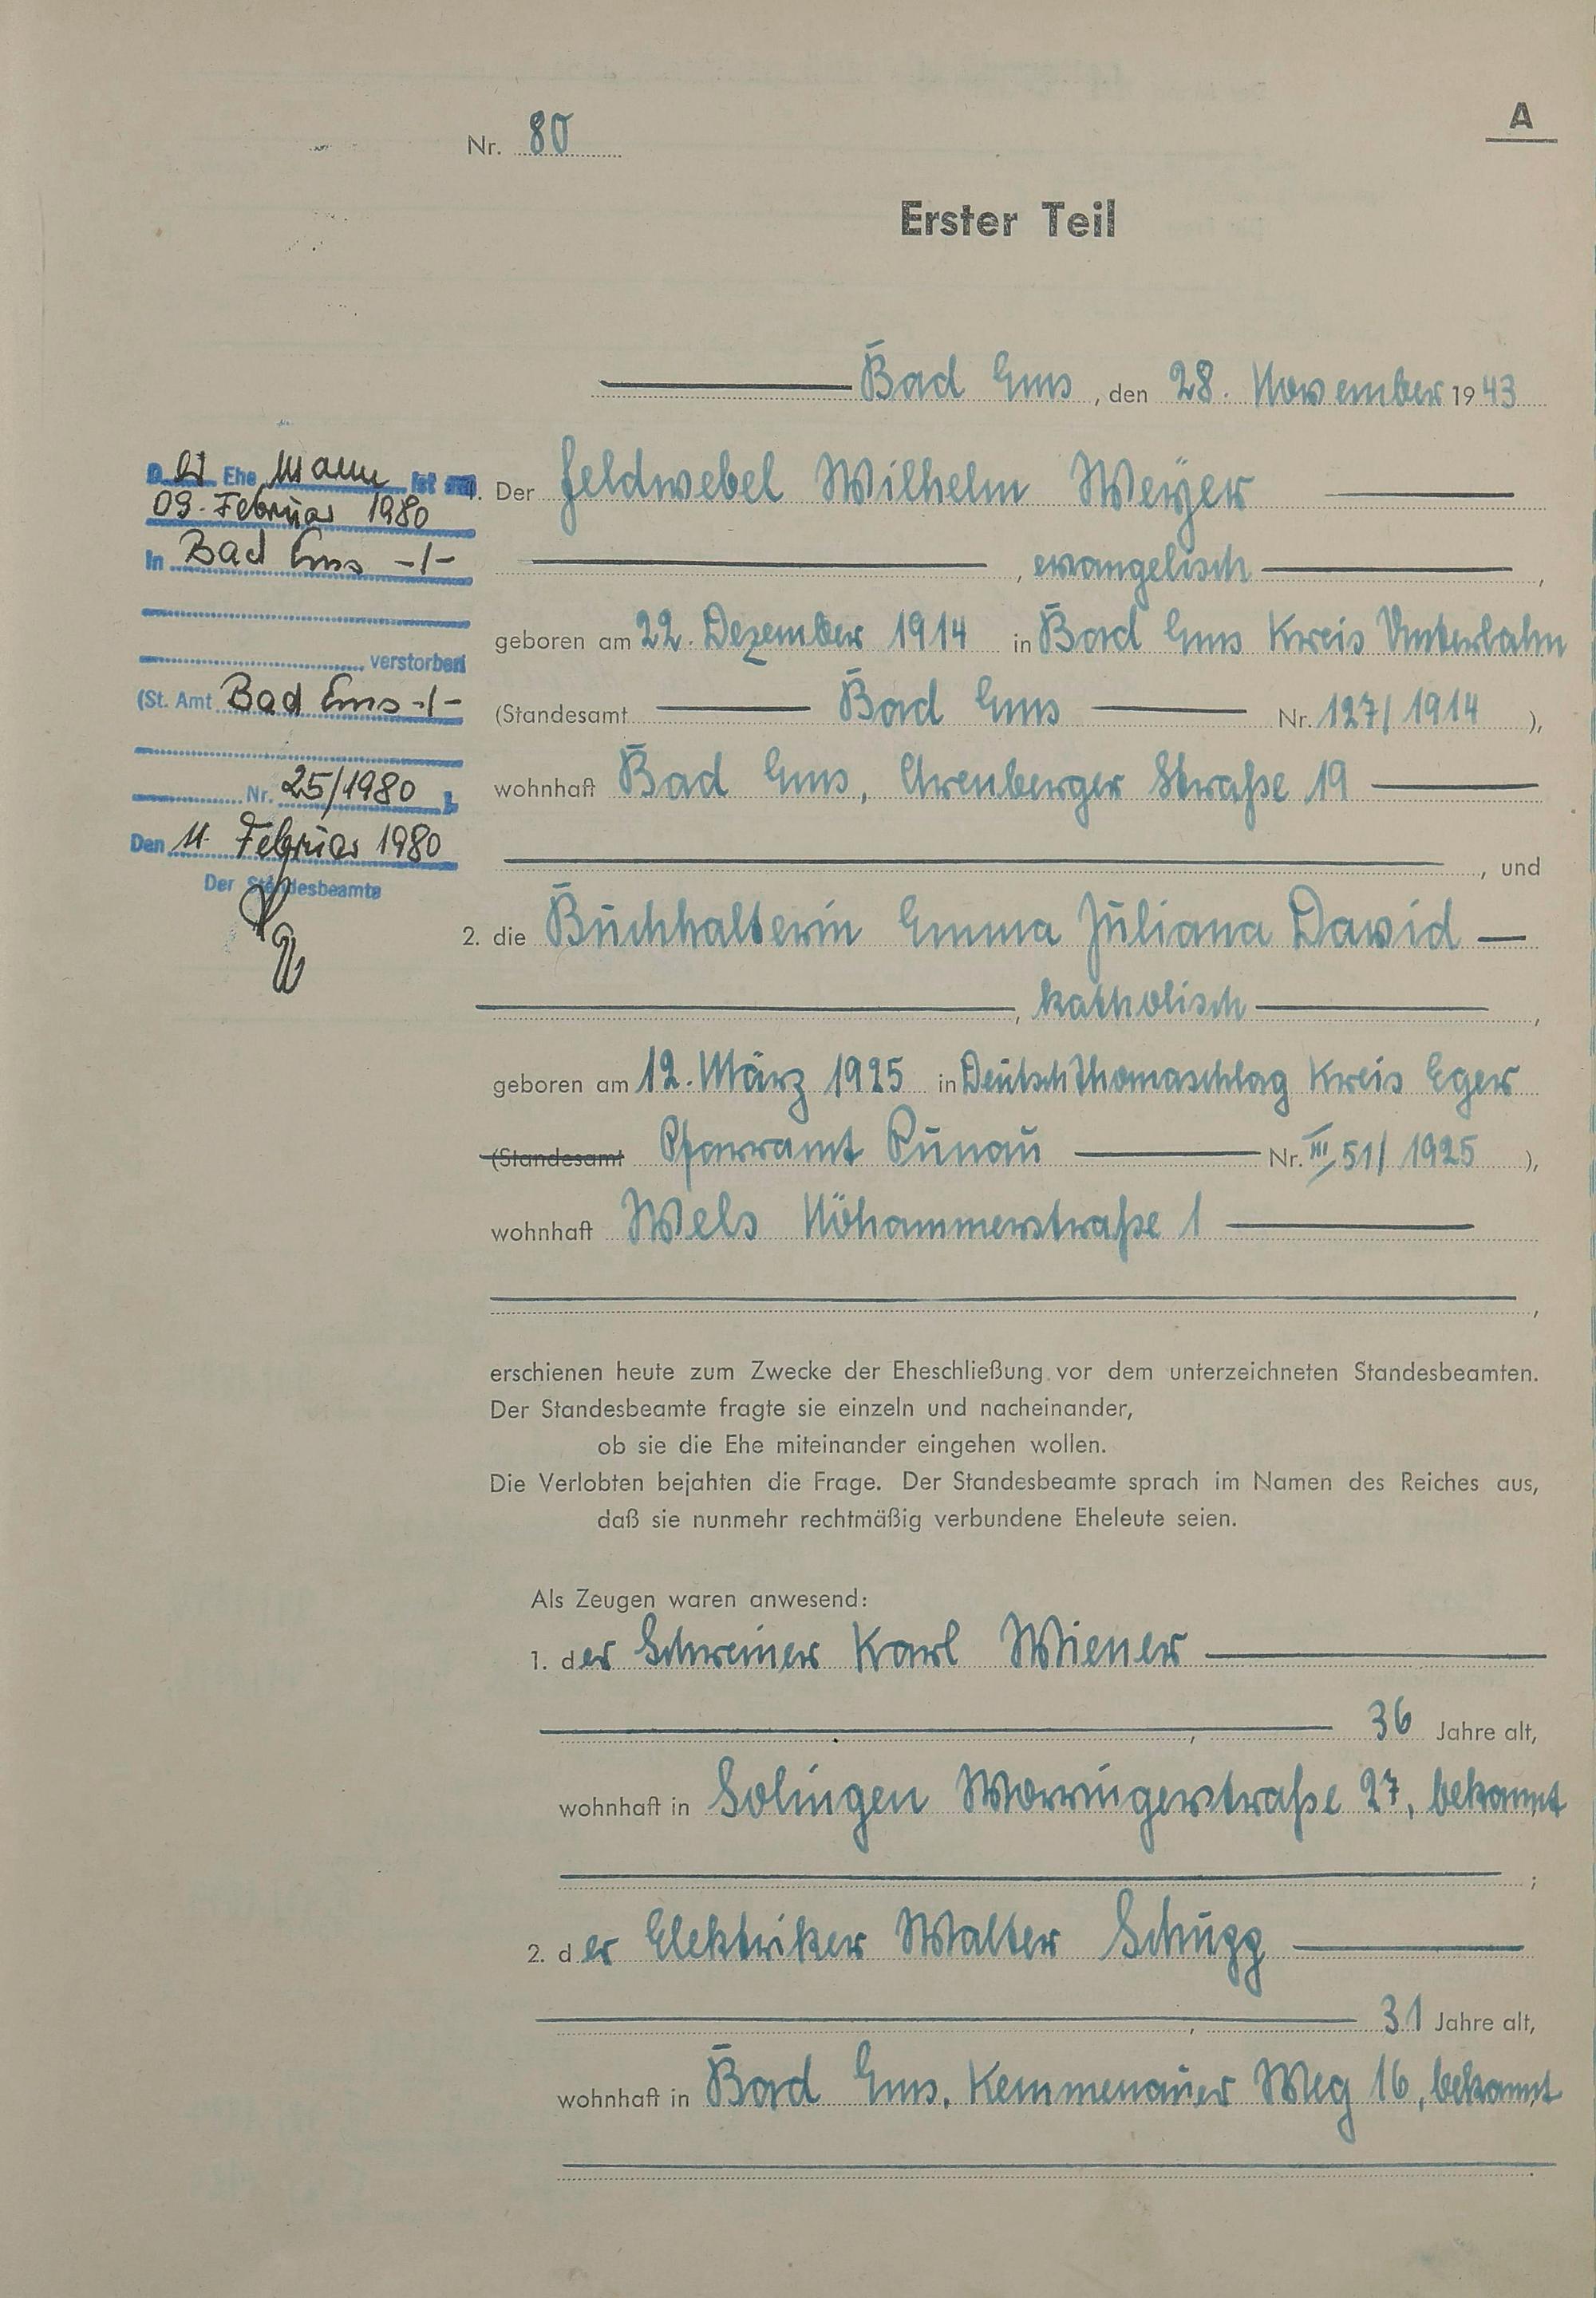 Nr. 80
A
Erster Teil
Bad Ems, den 28. November 1943
Der Ehe Mann ist am
09. Februar 1980
In Bad Ems -/-
verstorben
(St. Amt Bad Ems -/-
Nr. 25/1980 ).
Den 11. Februar 1980
Der Standesbeamte
1. Der Feldwebel Wilhelm Weyer
, evangelisch ,
geboren am 22. Dezember 1914 in Bad Ems Kreis Unterlahn
(Standesamt Bad Ems Nr. 127/1914 ),
wohnhaft Bad Ems, Arenberger Straße 19
, und
2. die Buchhalterin Emma Juliana David
, katholisch ,
geboren am 12. März 1925 in Deutsch Thomaschlag Kreis Eger
(Standesamt Pfarramt Kunau Nr. III, 51/1925 ),
wohnhaft Wels Nöhammerstraße 1
,
erschienen heute zum Zwecke der Eheschließung vor dem unterzeichneten Standesbeamten.
Der Standesbeamte fragte sie einzeln und nacheinander,
ob sie die Ehe miteinander eingehen wollen.
Die Verlobten bejahten die Frage. Der Standesbeamte sprach im Namen des Reiches aus,
daß sie nunmehr rechtmäßig verbundene Eheleute seien.
Als Zeugen waren anwesend:
1. der Schreiner Karl Wiener
, 36 Jahre alt,
wohnhaft in Solingen Worringerstraße 27, bekannt
;
2. der Elektriker Walter Schupp
, 31 Jahre alt,
wohnhaft in Bad Ems, Kemmenauer Weg 16, bekannt
.